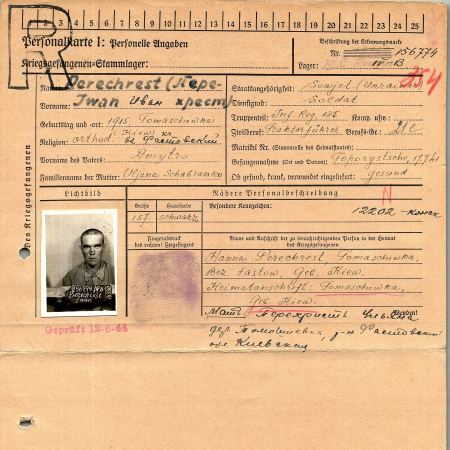 1 2 3 4 5 6 7 8 9 10 11 12 13 14 15 16 17 18 19 20 21 22 23 24 25
R
Personalkarte I: Personelle Angaben
Kriegsgefangenen-Stammlager:
Beschriftung der Erkennungsmarke
Nr. 156774
Lager: IV-B
Des Kriegsgefangenen
Name: Perechrest (Пере-
Vorname: Iwan Иван хрест)
Geburtstag und -ort: 1915, Tomaschiwka
Religion: orthod.
Vorname des Vaters: Dmytro
Familienname der Mutter: Uljana
Staatsangehörigkeit: Sowjet (Ukraine)
Dienstgrad: Soldat
Truppenteil: Inf. Reg. Komp. usw.:
Zivilberuf: Traktorführer Berufs-Gr.:
Matrikel Nr. (Stammrolle des Heimatstaates):
Gefangennahme (Ort und Datum):
Ob gesund, krank, verwundet eingeliefert: gesund
Lichtbild
Nähere Personalbeschreibung
N
Größe
Haarfarbe
Besondere Kennzeichen:
157
schwarz
12202
Fingerabdruck
des rechten Zeigefingers
Name und Anschrift der zu benachrichtigenden Person in der Heimat
des Kriegsgefangenen
Hanna Perechrest, Tomaschiwka,
Bez. Fastow, Geb. Kiew.
Heimatanschrift: Tomaschiwka,
Geb. Kiew.
Wenden!
Мать Перехристь Ульяна
дер. Томашевка, р-н Фастовский
обл. Киевская
156774 IV B
Perechrest
Iwan
Geprüft 12-6-44